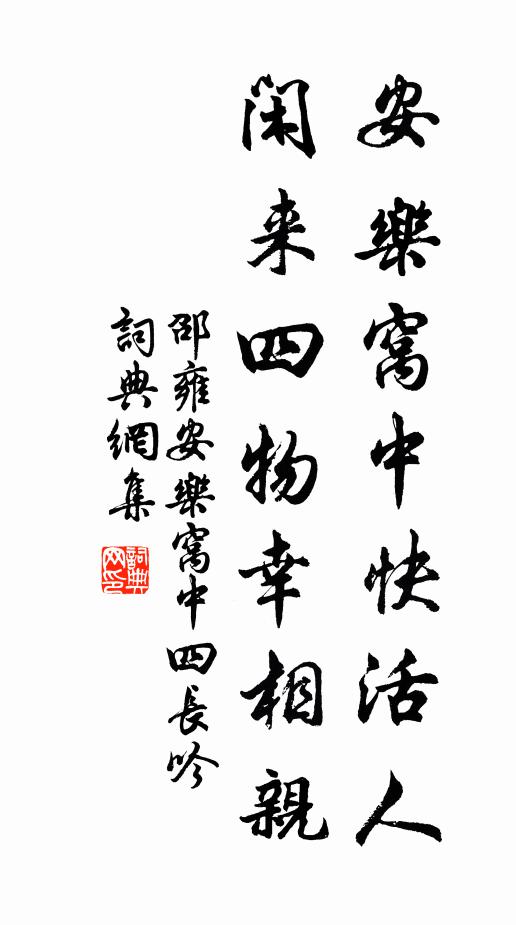 安樂窩中快活人
閑来四物幸相親
邵雍安樂窩中四長吟
詞典網集
詞典网印